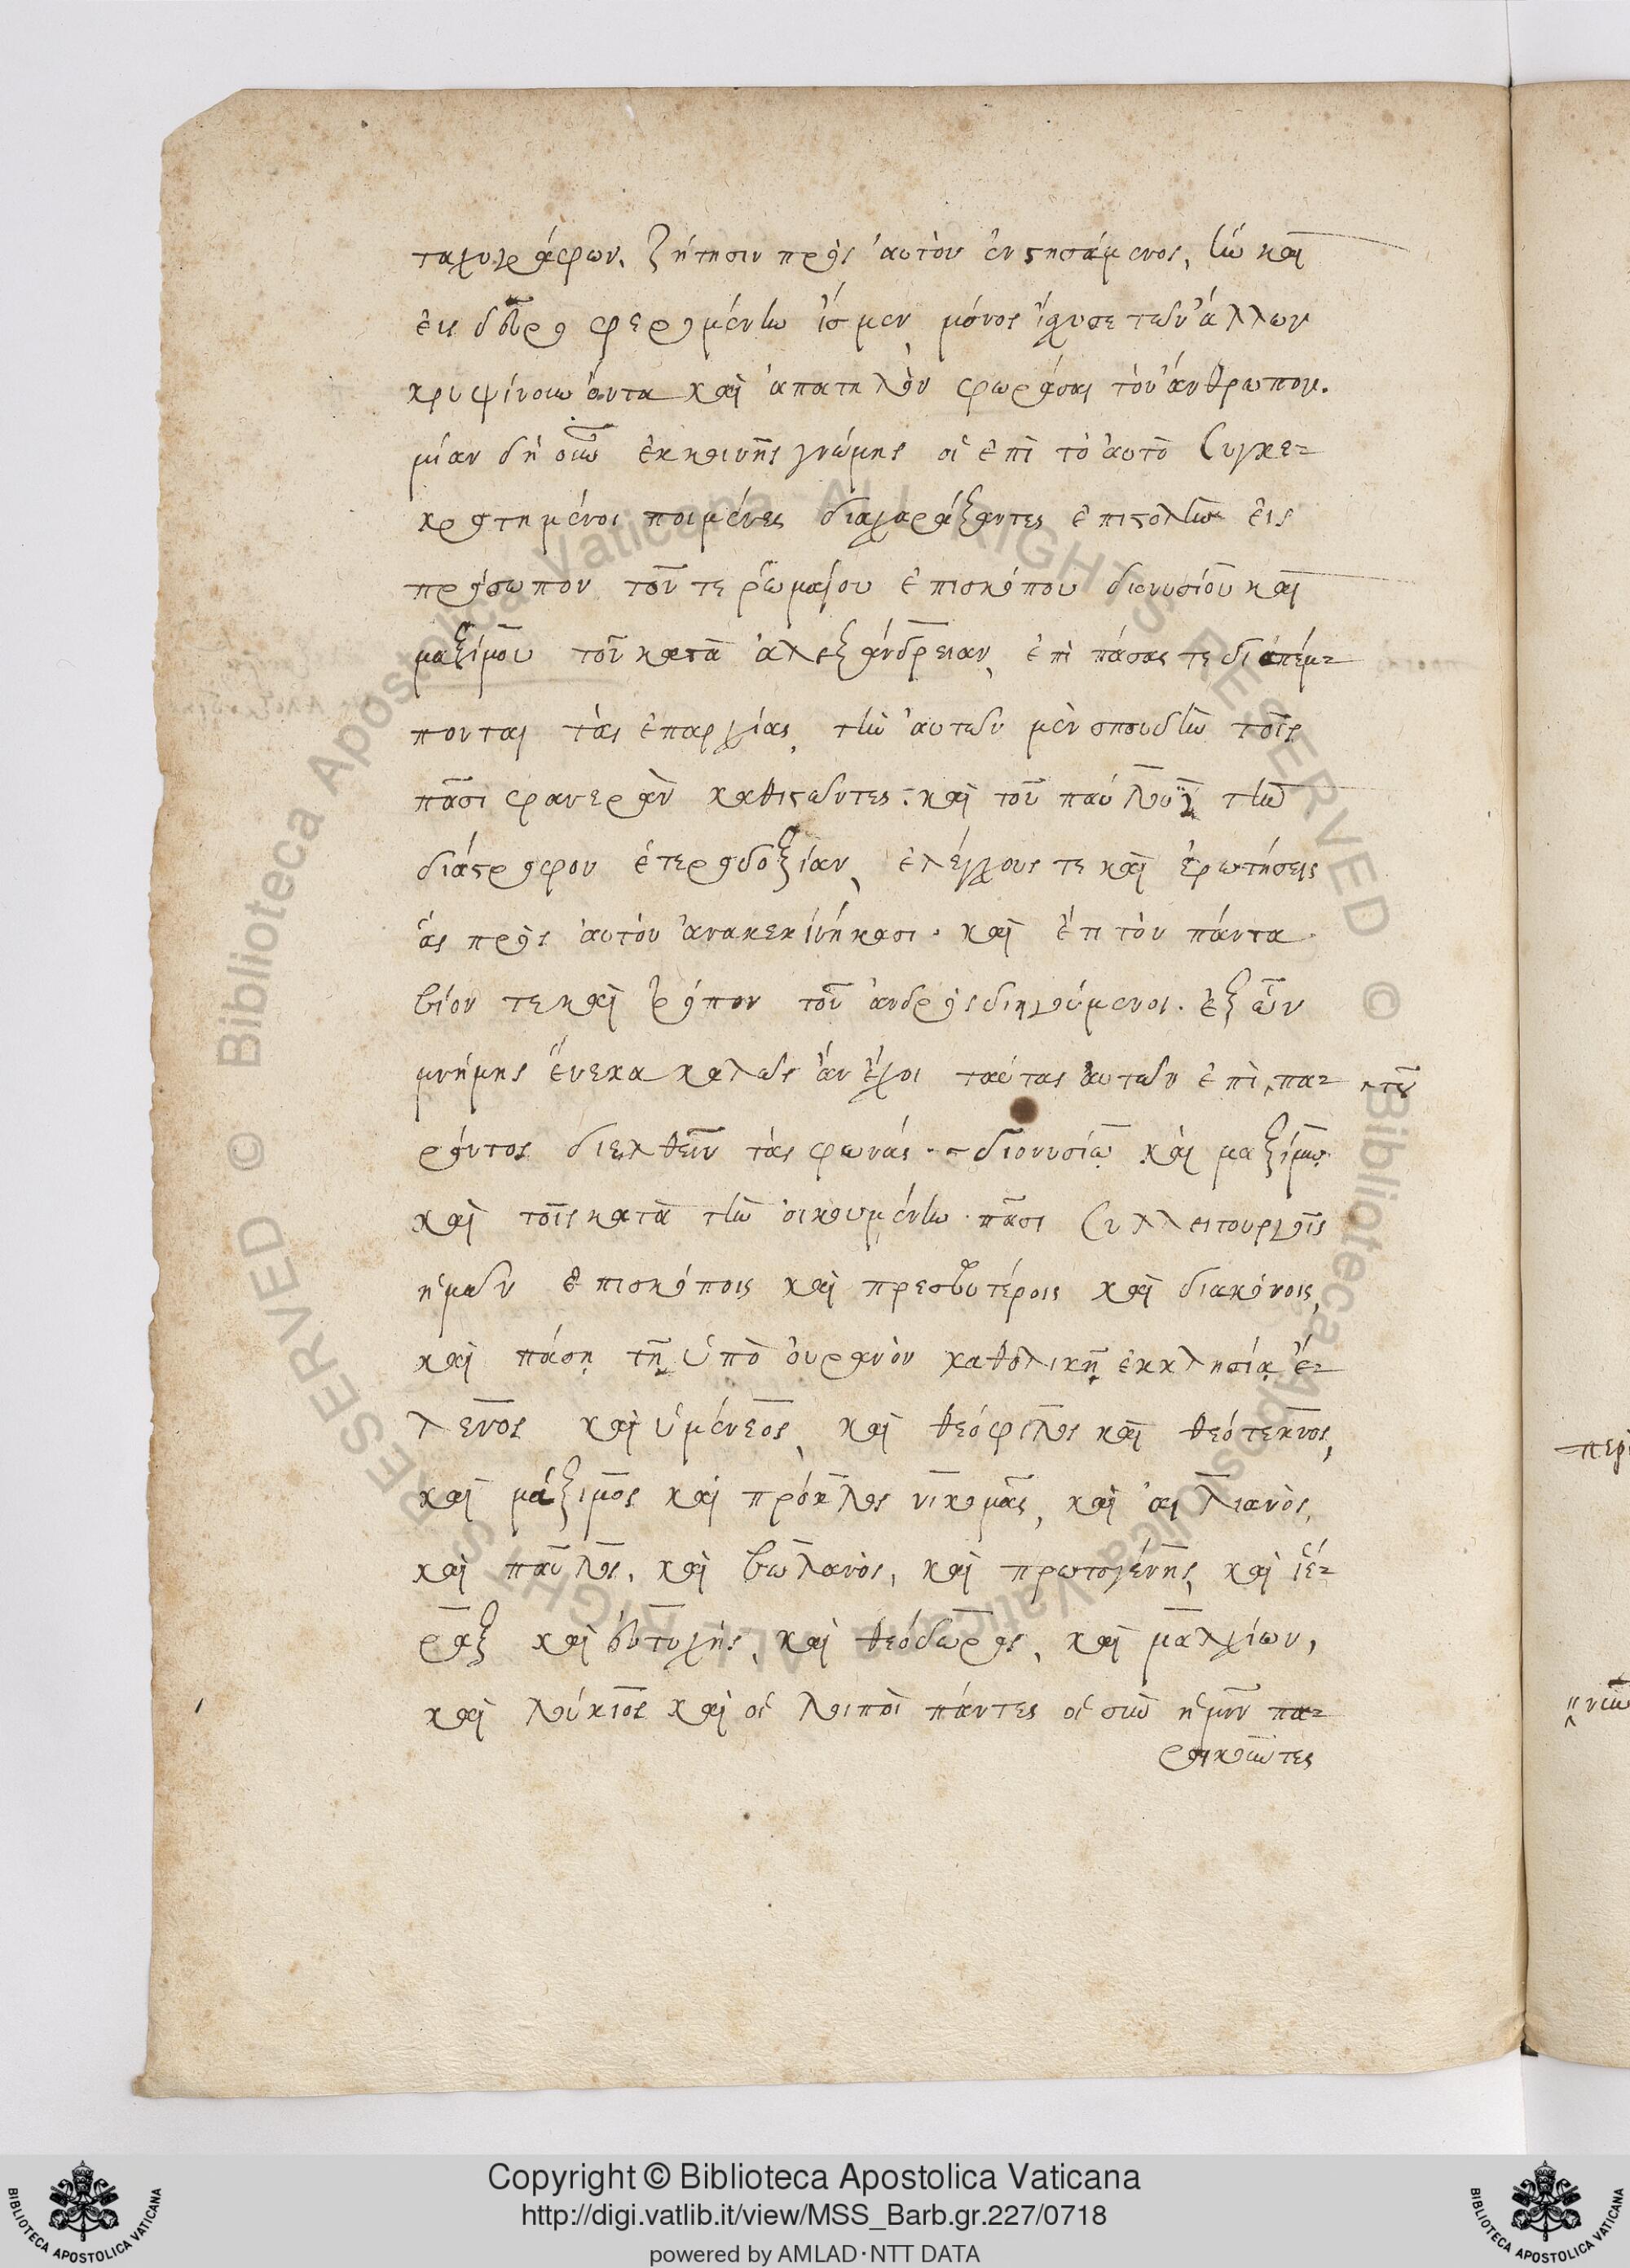 ταχυγράφων, ζήτησιν πρὸς αὐτὸν ἐνστησάμενος, ἣν καὶ
εἰς δεῦρο φερομένην ἴσμεν, μόνος ἴσχυσε τῶν ἄλλων
κρυψίνουν ὄντα καὶ ἀπατηλὸν φωράσαι τὸν ἄνθρωπον.
μίαν δὴ οὖν ἐκ κοινῆς γνώμης οἱ ἐπὶ τὸ αὐτὸ συγκε-
κροτημένοι ποιμένες διαχαράξαντες ἐπιστολὴν εἰς
πρόσωπον τοῦ τε ῥωμαίου ἐπισκόπου διονυσίου καὶ
μαξίμου τοῦ κατὰ ἀλεξάνδρειαν, ἐπὶ πάσας τε διαπέμ-
πονται τὰς ἐπαρχίας, τὴν αὐτῶν μὲν σπουδὴν τοῖς
πᾶσι φανερὰν καθιστῶντες· καὶ τοῦ παύλου τὴν
διάστροφον ἑτεροδοξίαν, ἐλέγχους τε καὶ ἐρωτήσεις
ἃς πρὸς αὐτὸν ἀνακεκινήκασι· καὶ ἔτι τὸν πάντα
βίον τε καὶ τρόπον τοῦ ἀνδρὸς διηγούμενοι. ἐξ ὧν
μνήμης ἕνεκα καλῶς ἂν ἔχοι ταύτας αὐτῶν ἐπὶ πα- τοῦ
ρόντος διελθεῖν τὰς φωνάς. διονυσίῳ καὶ μαξίμῳ
καὶ τοῖς κατὰ τὴν οἰκουμένην πᾶσι συλλειτουργοῖς
ἡμῶν ἐπισκόποις καὶ πρεσβυτέροις καὶ διακόνοις,
καὶ πάσῃ τῇ ὑπὸ οὐρανὸν καθολικῇ ἐκκλησίᾳ ἕ-
λενος καὶ ὑμέναιος, καὶ θεόφιλος καὶ θεότεκνος,
καὶ μάξιμος καὶ πρόκλος νικομᾶς, καὶ αἰλιανὸς,
καὶ παῦλος, καὶ βωλανὸς, καὶ πρωτογένης, καὶ ἱέ-
ραξ καὶ εὐτυχὴς, καὶ θεόδωρος, καὶ μαλχίων,
καὶ λούκιος καὶ οἱ λοιποὶ πάντες οἱ σὺν ἡμῖν πα-
ροικοῦντες
Copyright © Biblioteca Apostolica Vaticana
http://digi.vatlib.it/view/MSS_Barb.gr.227/0718
powered by AMLAD·NTT DATA